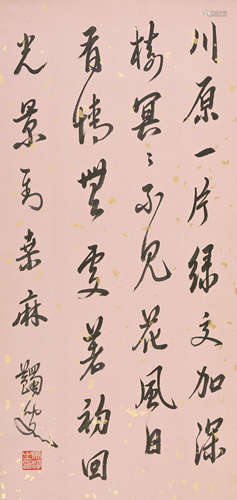 川原一片綠交加深
樹冥〻不見花風日
有情無處著初回
光景到桒麻 蠲叟